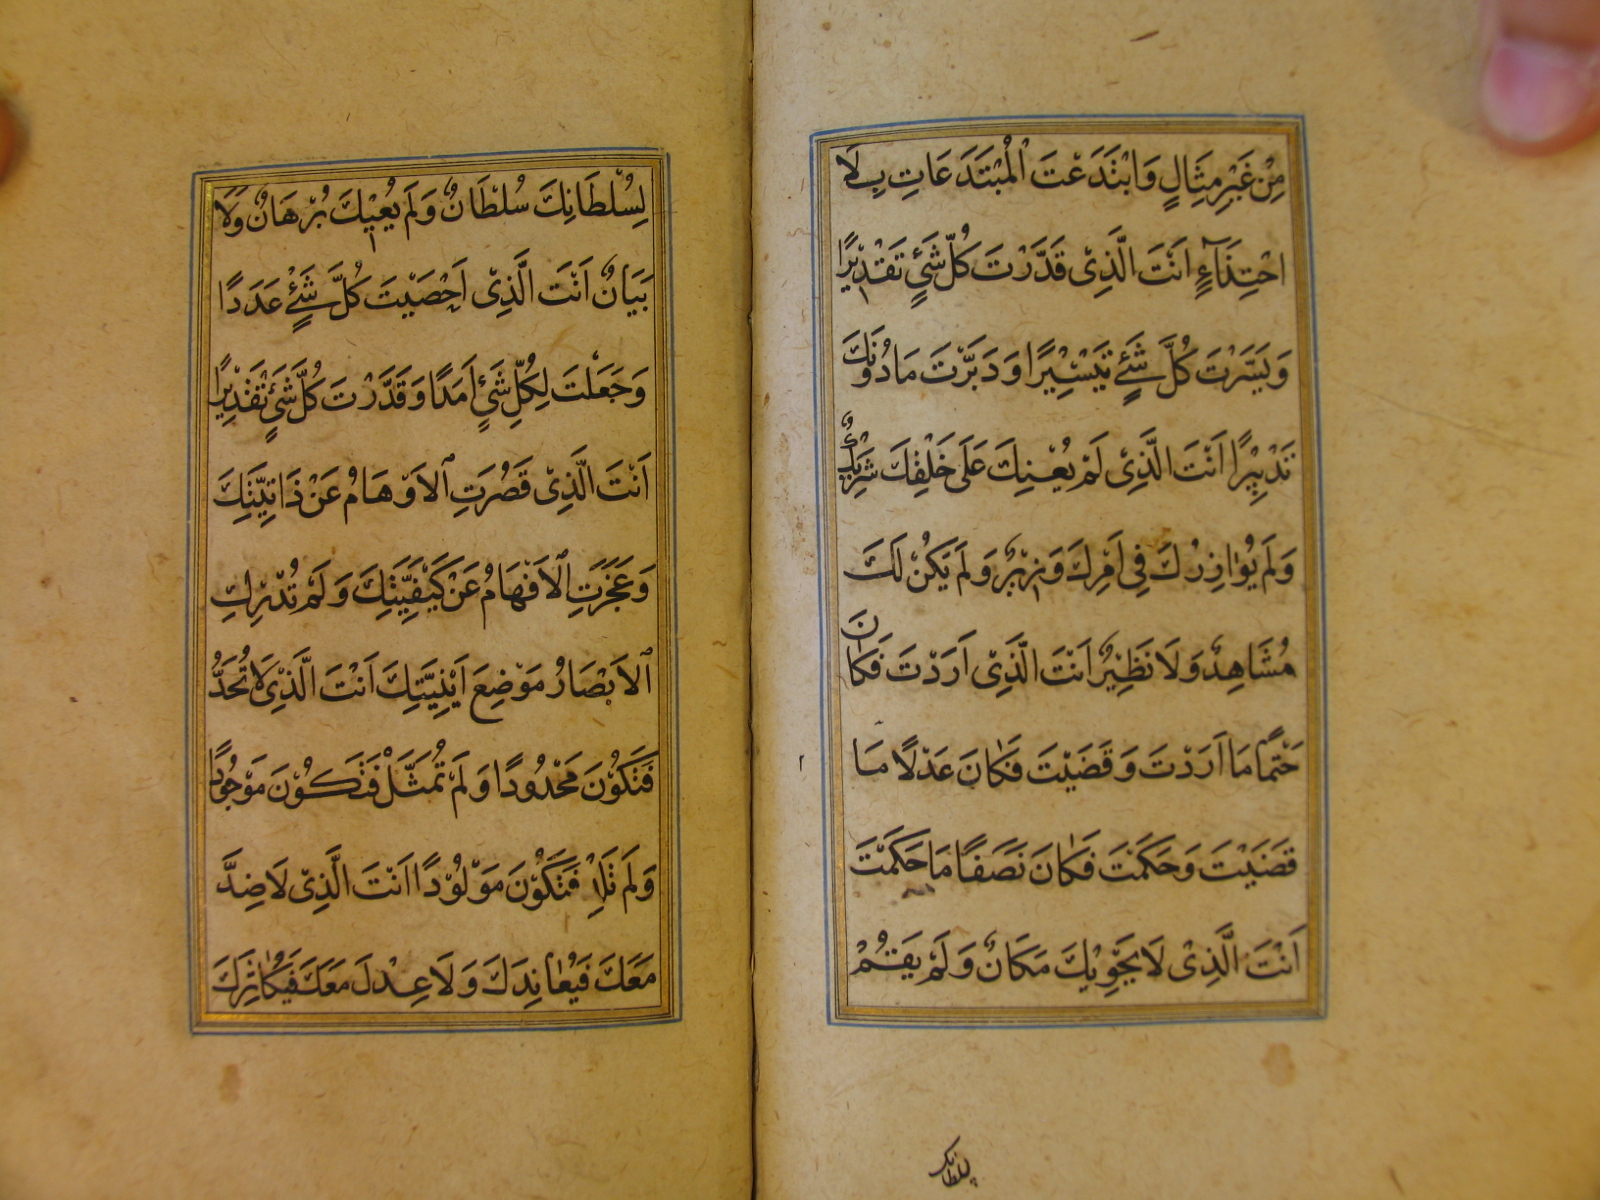 مِنْ غَيْرِ مِثَالٍ وَابْتَدَعْتَ الْمُبْتَدَعَاتِ بِلَا
احْتِذَآءٍ اَنْتَ الَّذِیْ قَدَّرْتَ كُلَّ شَیْءٍ تَقْدِيْرًا
وَيَسَّرْتَ كُلَّ شَیْءٍ تَيْسِيْرًا وَدَبَّرْتَ مَا دُوْنَكَ
تَدْبِيْرًا اَنْتَ الَّذِیْ لَمْ يُعِنْكَ عَلٰی خَلْقِكَ شَرِيْكٌ
وَلَمْ يُوَازِرْكَ فِی اَمْرِكَ وَزِيْرٌ وَلَمْ يَكُنْ لَكَ
مُشَاهِدٌ وَلَا نَظِيْرٌ اَنْتَ الَّذِیْ اَرَدْتَ فَكَانَ
حَتْمًا مَا اَرَدْتَ وَقَضَيْتَ فَكَانَ عَدْلًا مَا
قَضَيْتَ وَحَكَمْتَ فَكَانَ نَصَفًا مَا حَكَمْتَ
اَنْتَ الَّذِیْ لَا يَحْوِيْكَ مَكَانٌ وَلَمْ يَقُمْ
لسلطانك
لِسُلْطَانِكَ سُلْطَانٌ وَلَمْ يُعْيِكَ بُرْهَانٌ وَلَا
بَيَانٌ اَنْتَ الَّذِیْ اَحْصَيْتَ كُلَّ شَیْءٍ عَدَدًا
وَجَعَلْتَ لِكُلِّ شَیْءٍ اَمَدًا وَقَدَّرْتَ كُلَّ شَیْءٍ تَقْدِيْرًا
اَنْتَ الَّذِیْ قَصُرَتِ الْاَوْهَامُ عَنْ ذَاتِيَّتِكَ
وَعَجَزَتِ الْاَفْهَامُ عَنْ كَيْفِيَّتِكَ وَلَمْ تُدْرِكِ
الْاَبْصَارُ مَوْضِعَ اَيْنِيَّتِكَ اَنْتَ الَّذِیْ لَا تُحَدُّ
فَتَكُوْنَ مَحْدُوْدًا وَلَمْ تُمَثَّلْ فَتَكُوْنَ مَوْجُوْدًا
وَلَمْ تَلِدْ فَتَكُوْنَ مَوْلُوْدًا اَنْتَ الَّذِیْ لَا ضِدَّ
مَعَكَ فَيُعَانِدَكَ وَلَا عِدْلَ مَعَكَ فَيُكَاثِرَكَ